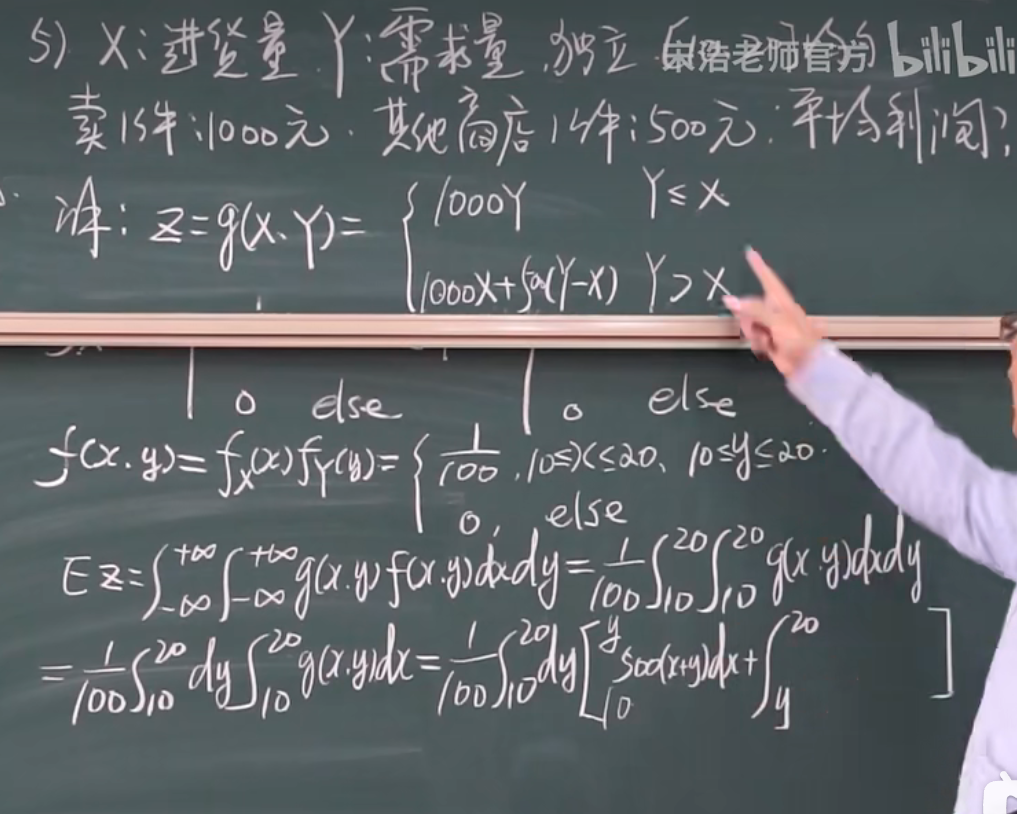 5) X:进货量 Y:需求量,独立
宋浩老师官方 bilibili
卖1件:1000元. 其他商店1件:500元. 平均利润?
解: z=g(X、Y)= { 1000Y Y≤X
1000X+500(Y-X) Y>X
0 else 0 else
f(x.y)=f_X(x)f_Y(y)= { 1/100 ,10≤x≤20、10≤y≤20.
0, else
Ez=∫_{-∞}^{+∞}∫_{-∞}^{+∞}g(x.y)f(x.y)dxdy=1/100∫_{10}^{20}∫_{10}^{20}g(x.y)dxdy
=1/100∫_{10}^{20}dy∫_{10}^{20}g(x.y)dx=1/100∫_{10}^{20}dy[∫_{10}^{y}500(x+y)dx+∫_{y}^{20} ]